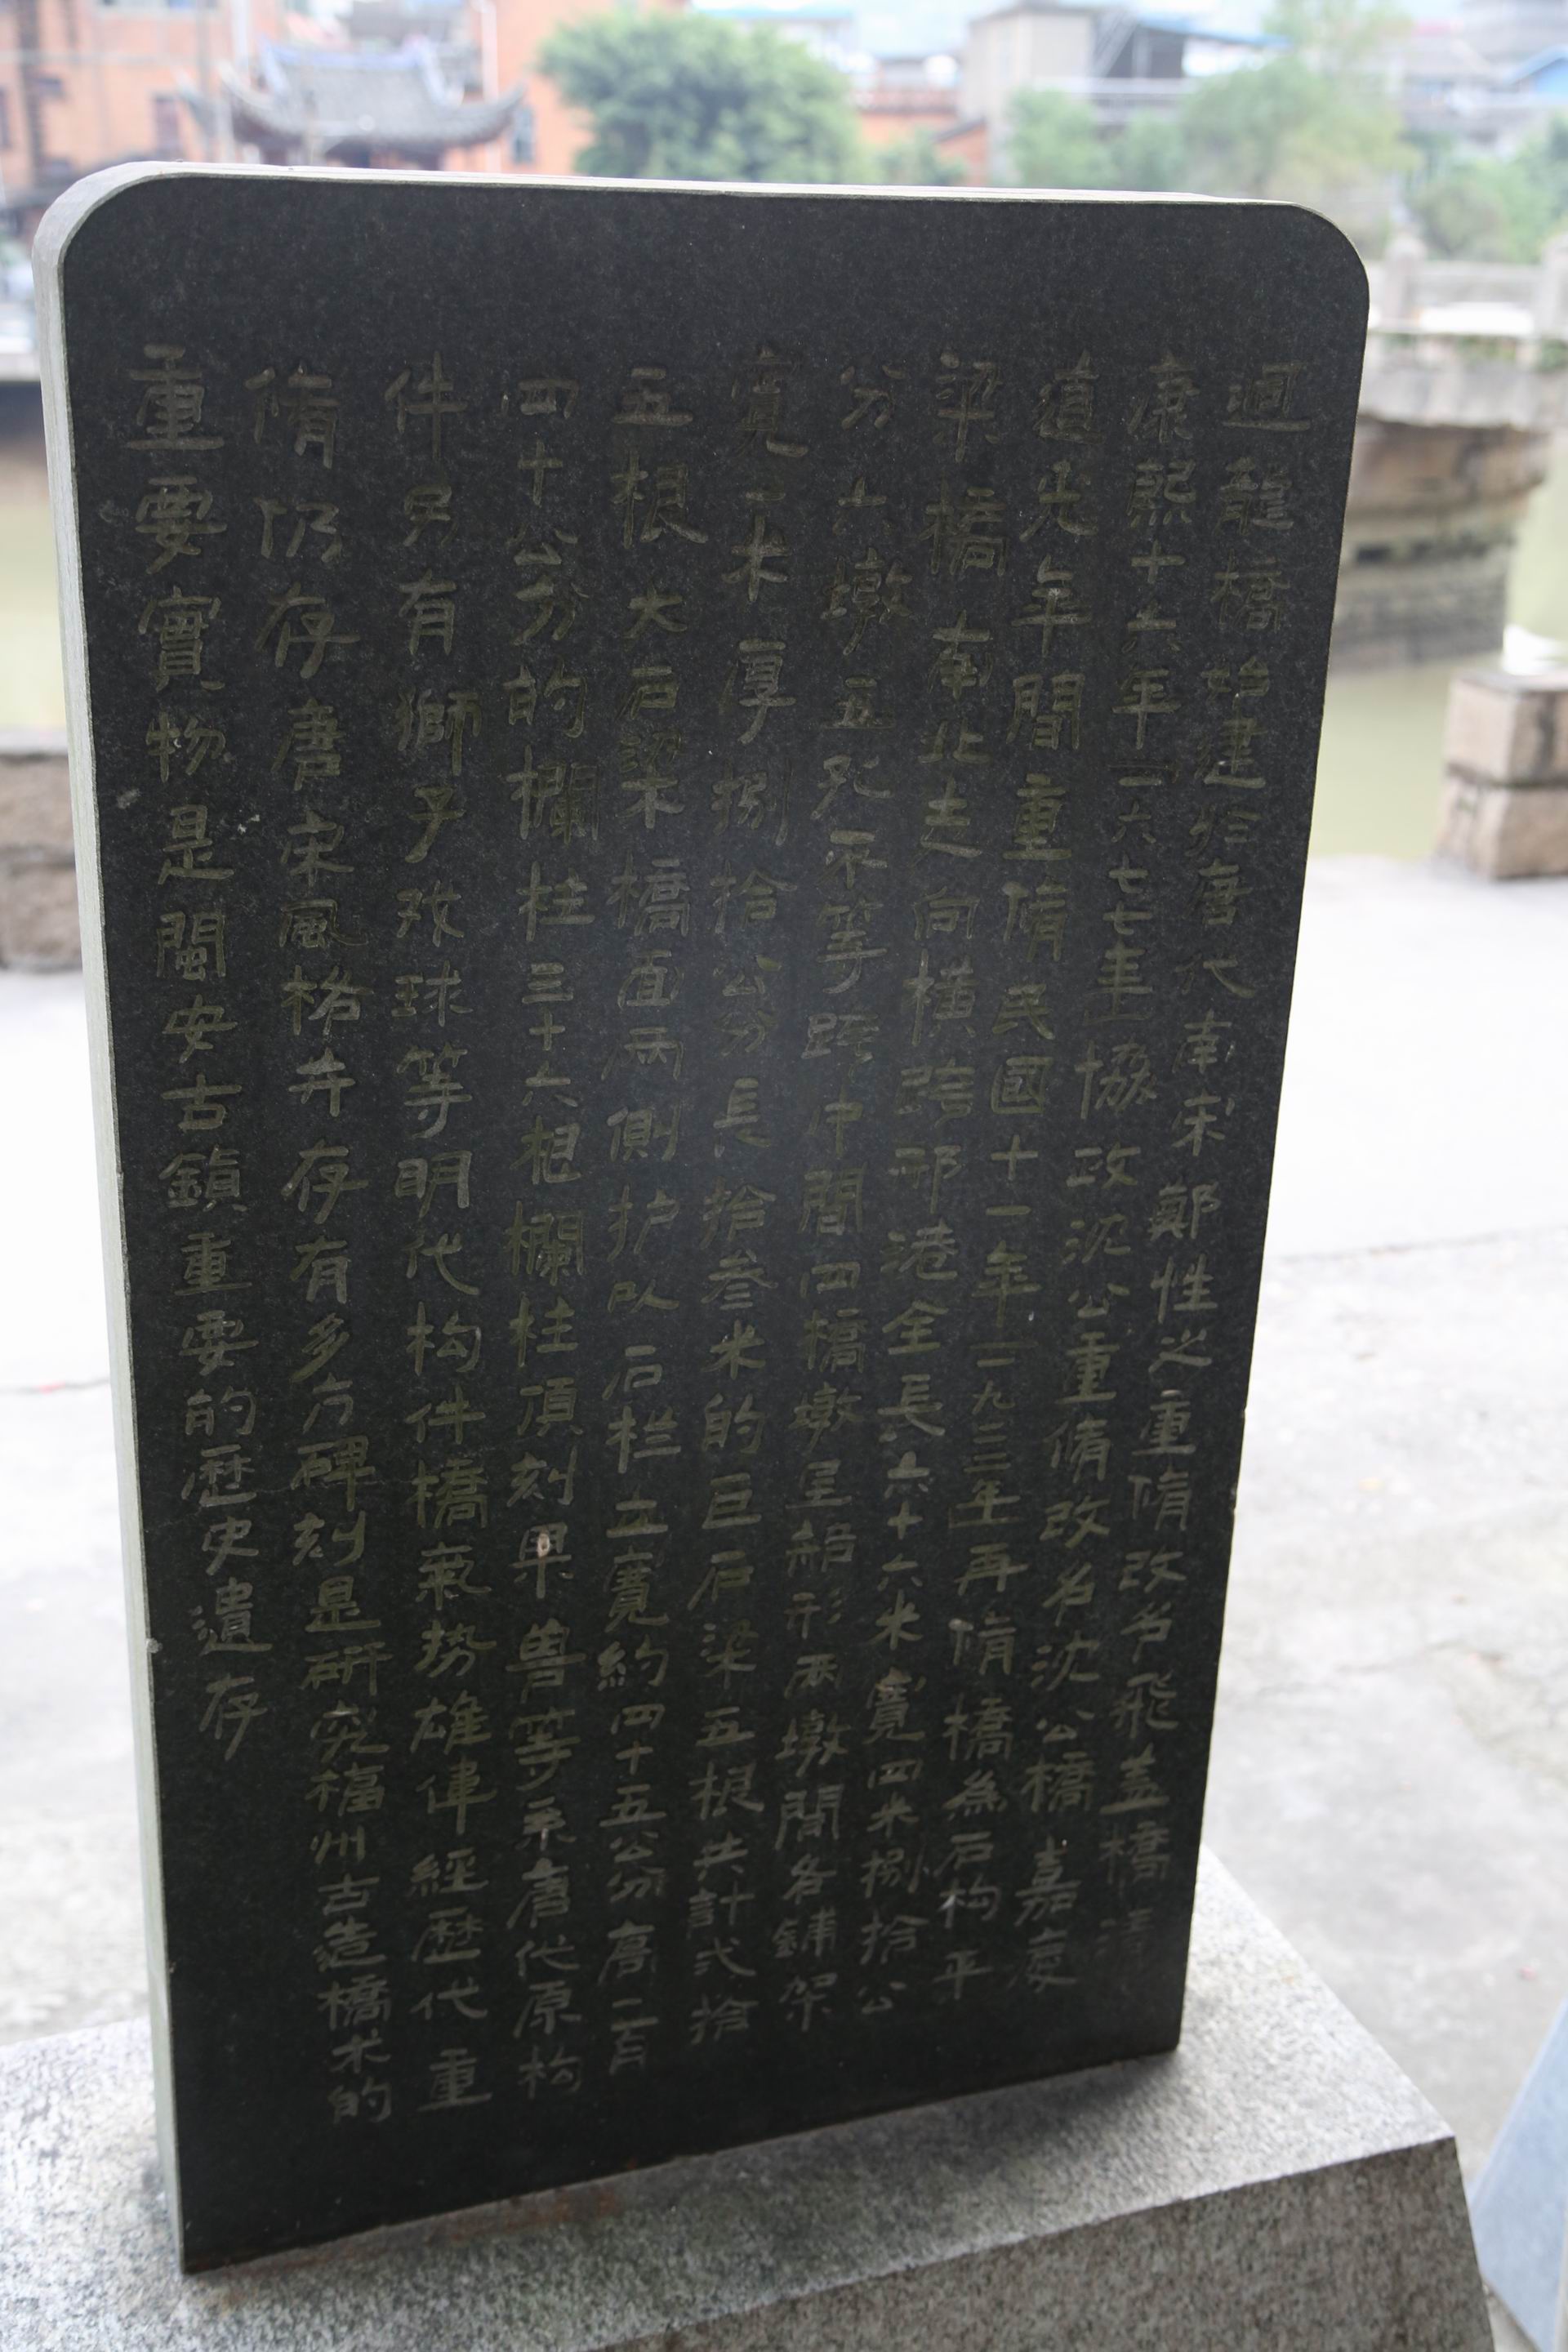 迴龍橋始建於唐代南宋鄭性之重脩改名飛蓋橋清
康熙十六年一六七七年協政沉公重脩改名沈公橋嘉慶
道光年間重脩民國十一年一九三三年再脩橋為石构平
梁橋南北走向橫跨邢港全長六十六米寬四米捌拾公
分六墩五孔不等跨中間四橋墩呈船形兩墩間各鋪架
寬一米厚捌拾公分長拾叁米的巨石梁五根共計弍拾
五根大石梁橋面兩側护以石栏立寬約四十五公分高一百
四十公分的欄柱三十六根欄柱頂刻果兽等系唐代原构
件另有獅子戏球等明代构件橋氣势雄偉經歷代重
脩仍存唐宋風格并存有多方碑刻是研究福州古造橋术的
重要實物是閩安古鎮重要的歷史遺存